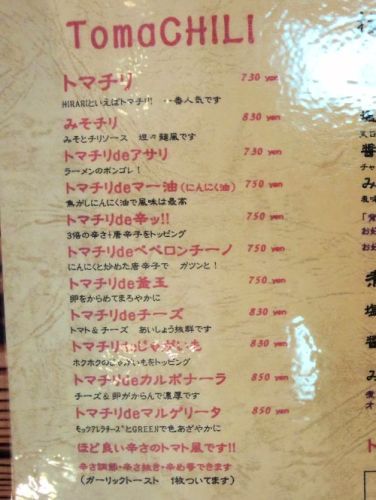 TomaCHILI
トマチリ 730 yen
HIRARIといえばトマチリ!! 一番人気です
みそチリ 830 yen
みそとチリソース 坦々麺風です
トマチリdeアサリ 730 yen
ラーメンのボンゴレ！
トマチリdeマー油(にんにく油) 750 yen
焦がしにんにく油で風味は最高
トマチリde辛ッ!! 750 yen
3倍の辛さ+唐辛子をトッピング
トマチリdeペペロンチーノ 750 yen
にんにくと炒めた唐辛子で ガツンと！
トマチリde釜玉 750 yen
卵をからめてまろやかに
トマチリdeチーズ 830 yen
トマト&チーズ あいしょう抜群です
トマチリdeじゃがいも 830 yen
ホクホクのじゃがいもをトッピング
トマチリdeカルボナーラ 850 yen
チーズ&卵がからんで濃厚です
トマチリdeマルゲリータ 850 yen
モッツアレラチーズとGREENで色あざやかに
ほど良い辛さのトマト風です!!
辛さ調節・辛さ抜き・辛め等できます
(ガーリックトースト 1枚ついてます)